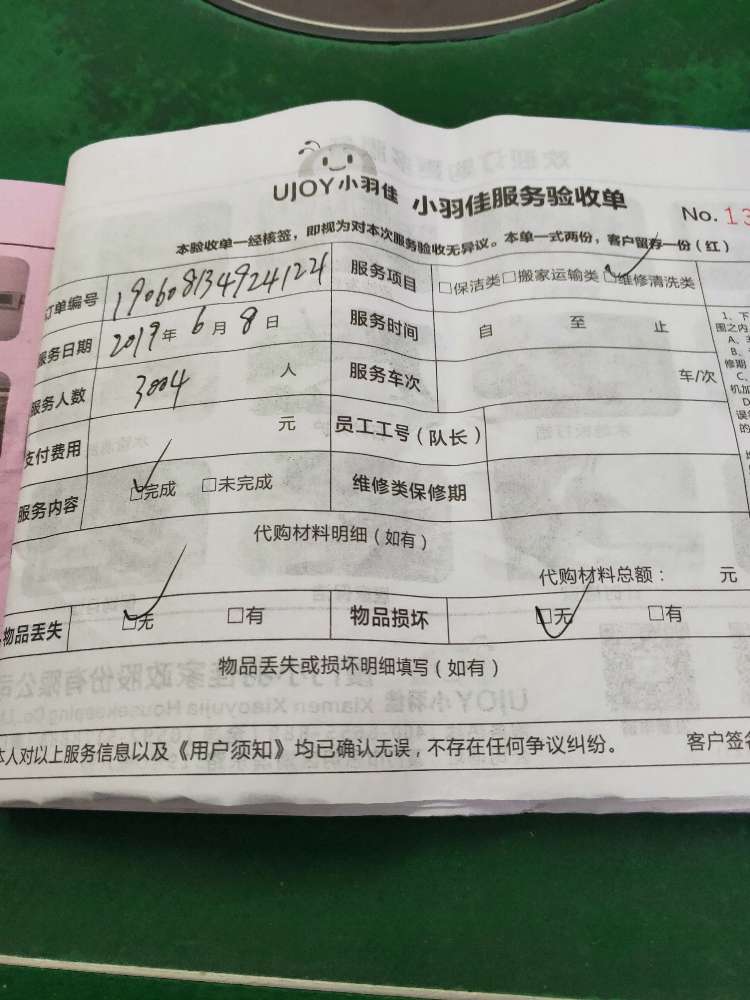 UJOY小羽佳 小羽佳服务验收单 No. 13
本验收单一经核签，即视为对本次服务验收无异议。本单一式两份，客户留存一份（红）
订单编号 190608134924124 服务项目 □保洁类□搬家运输类□维修清洗类
服务日期 2019年 6 月 8 日 服务时间 自 至 止
服务人数 3004 人 服务车次 车/次
支付费用 元 员工工号（队长）
服务内容 □完成 □未完成 维修类保修期
代购材料明细（如有）
代购材料总额： 元
物品丢失 □无 □有 物品损坏 □无 □有
物品丢失或损坏明细填写（如有）
本人对以上服务信息以及《用户须知》均已确认无误，不存在任何争议纠纷。 客户签名